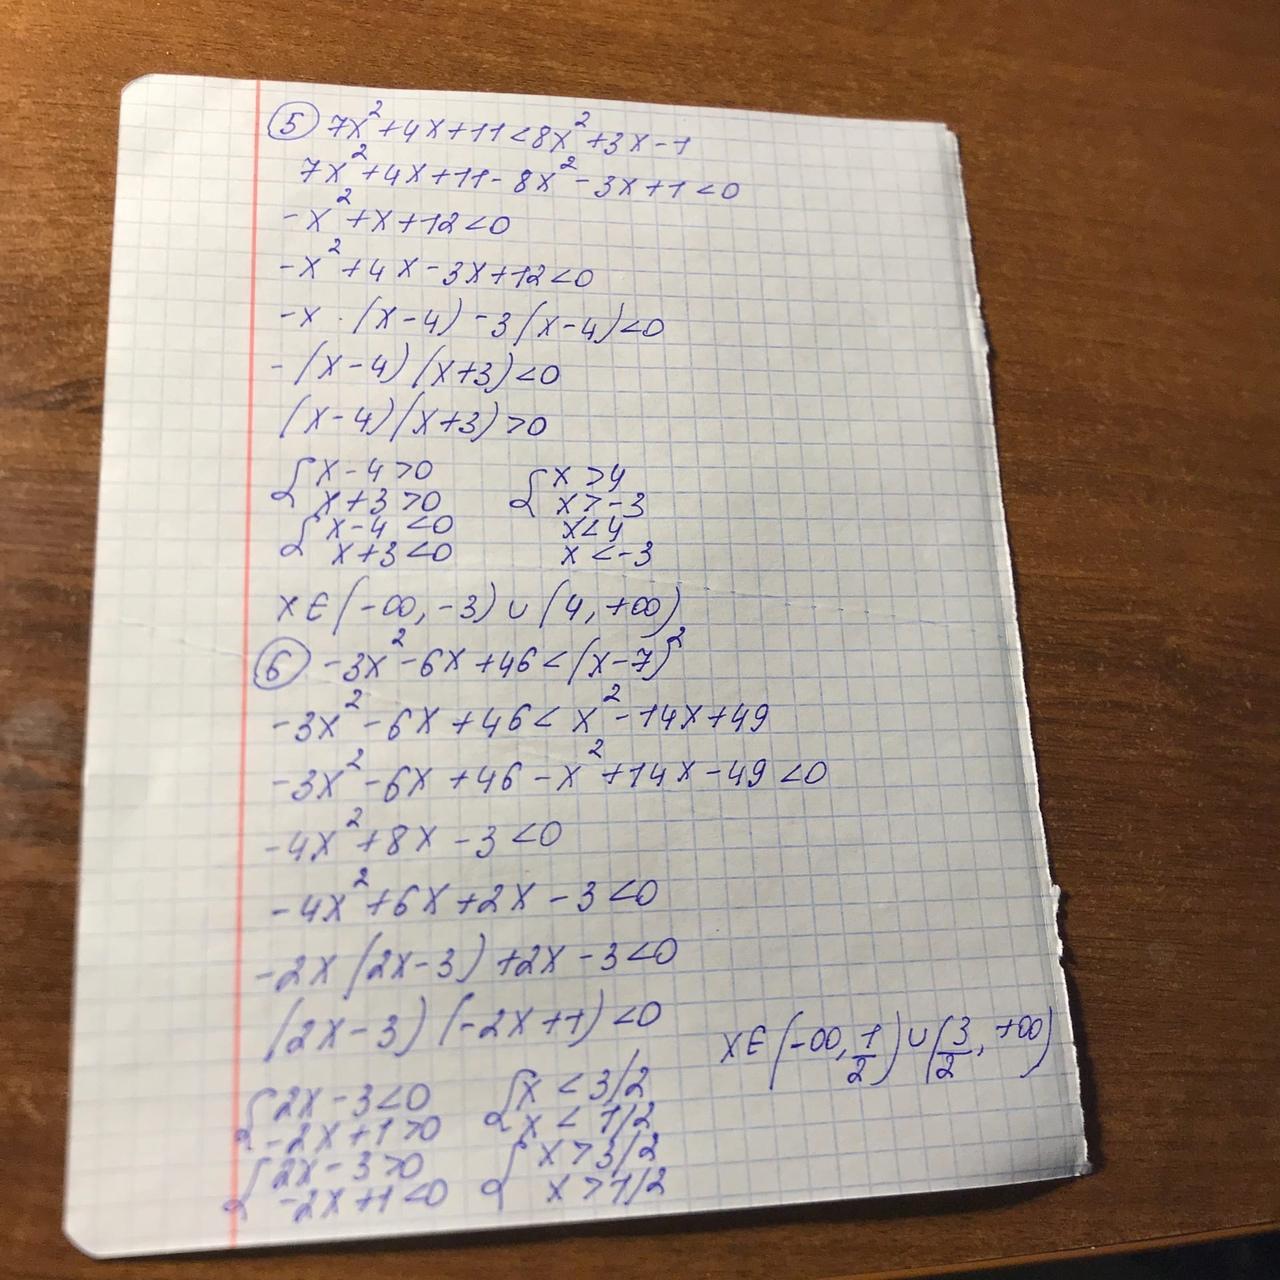 ⑤ 7x²+4x+11<8x²+3x-1
7x²+4x+11-8x²-3x+1<0
-x²+x+12<0
-x²+4x-3x+12<0
-x·(x-4)-3(x-4)<0
-(x-4)(x+3)<0
(x-4)(x+3)>0
{x-4>0 {x>4
x+3>0 x>-3
{x-4<0 x<4
x+3<0 x<-3
x∈(-∞,-3)∪(4,+∞)
⑥ -3x²-6x+46<(x-7)²
-3x²-6x+46<x²-14x+49
-3x²-6x+46-x²+14x-49<0
-4x²+8x-3<0
-4x²+6x+2x-3<0
-2x(2x-3)+2x-3<0
(2x-3)(-2x+1)<0
x∈(-∞,1/2)∪(3/2,+∞)
{2x-3<0 {x<3/2
-2x+1>0 x<1/2
{2x-3>0 {x>3/2
-2x+1<0 x>1/2